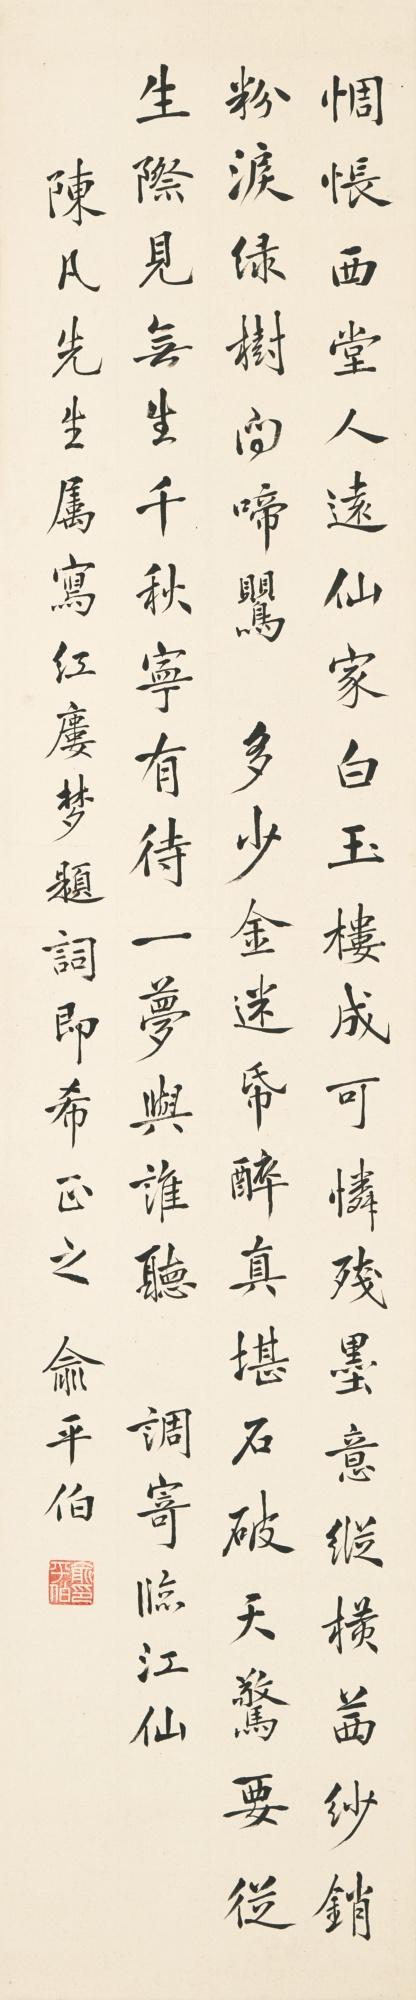 惆悵西堂人遠仙家白玉樓成可憐殘墨意縱橫茜紗銷
粉淚绿樹问啼鸎　多少金迷帋醉真堪石破天驚要從
生際見無生千秋寧有待一夢與誰聽　調寄臨江仙
陳凡先生属寫红廔梦題詞即希正之　俞平伯
俞平伯印